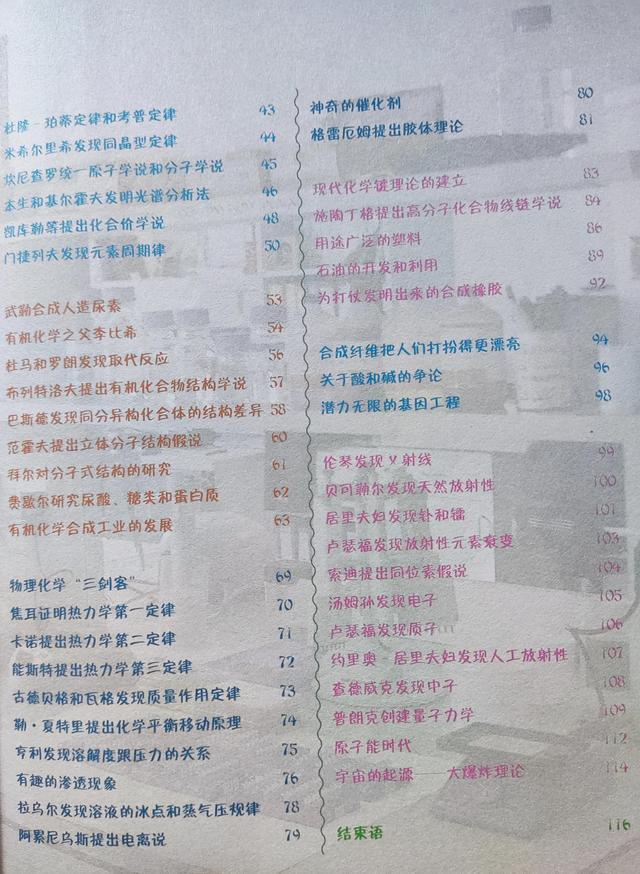 杜隆-珀蒂定律和考普定律 43
米希尔里希发现同晶型定律 44
坎尼查罗统一原子学说和分子学说 45
本生和基尔霍夫发明光谱分析法 46
凯库勒等提出化合价学说 48
门捷列夫发现元素周期律 50
武勒合成人造尿素 53
有机化学之父李比希 54
杜马和罗朗发现取代反应 56
布列特洛夫提出有机化合物结构学说 57
巴斯德发现同分异构化合体的结构差异 58
范霍夫提出立体分子结构假说 60
拜尔对分子式结构的研究 61
费歇尔研究尿酸、糖类和蛋白质 62
有机化学合成工业的发展 63
物理化学“三剑客” 69
焦耳证明热力学第一定律 70
卡诺提出热力学第二定律 71
能斯特提出热力学第三定律 72
古德贝格和瓦格发现质量作用定律 73
勒·夏特里提出化学平衡移动原理 74
亨利发现溶解度跟压力的关系 75
有趣的渗透现象 76
拉乌尔发现溶液的冰点和蒸气压规律 78
阿累尼乌斯提出电离说 79
神奇的催化剂 80
格雷厄姆提出胶体理论 81
现代化学键理论的建立 83
施陶丁格提出高分子化合物线链学说 84
用途广泛的塑料 86
石油的开发和利用 89
为打仗发明出来的合成橡胶 92
合成纤维把人们打扮得更漂亮 94
关于酸和碱的争论 96
潜力无限的基因工程 98
伦琴发现X射线 99
贝可勒尔发现天然放射性 100
居里夫妇发现钋和镭 101
卢瑟福发现放射性元素衰变 103
索迪提出同位素假说 104
汤姆孙发现电子 105
卢瑟福发现质子 106
约里奥-居里夫妇发现人工放射性 107
查德威克发现中子 108
普朗克创建量子力学 109
原子能时代 112
宇宙的起源——大爆炸理论 114
结束语 116